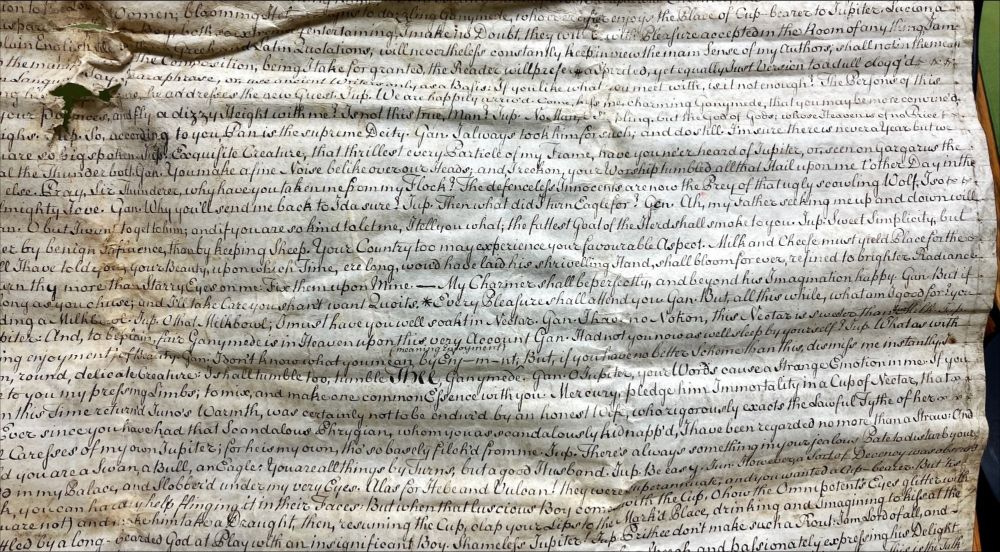 Women; blooming Hebe resigns to dazzling Ganymede, who ever after enjoys the Place of Cup-bearer to Jupiter. Lucian a
both extremely entertaining, I make no Doubt they will with Pleasure accepted in the Room of any thing I am
lain English Greek and Latin Quotations, will nevertheless constantly keep in view the main Sense of my Authors; shall not in the mean
the mun Composition, being, I take for granted, the Reader will prefer a Spirited, yet equally Just Version to a dull dogg'd
n Language, I say paraphrase, or use ancient only as a Basis. If you like what you meet with, is it not enough? The Persons of this
he addresses the new Guest. Jup. We are happily arriv'd. Come, kiss me, charming Ganymede, that you may be more convinc'd,
your and fly a dizzy Height with me? Is not this true, Man? Jup. No Man, but the God of Gods; whose Heavens of no Price t
ughs. Jup. So, according to you, Pan is the supreme Deity. Gan. I always took him for such; and do still. I'm sure there is never a Year but we
are so big spoken. Jup. Exquisite Creature, that thrillest every Particle of my Frame, have you ne'er heard of Jupiter, or seen on Gargarus the
al the Thunder-bolt. Gan. You make a fine Noise belike over our Heads; and, I reckon, your Worship tumbled all that Hail upon me t'other Day in the
else. Pray, Sir Thunderer, why have you taken me from my Flock? The defenceless Innocents are now the Prey of that ugly scowling Wolf, I so
lmighty Jove. Gan. Why you'll send me back to Ida sure? Jup. Then what did I turn Eagle for? Gan. Ah, my Father seeking me up and down will
n. O but I wou'd get to him; and if you are so kind to let me, I tell you what; the fattest Goat of the Herd shall smoke to you. Jup. Sweet Simplicity, but
er by benign Influence, than by keeping Sheep. Your Country too may experience your favourable Aspect. Milk and Cheese must yield Place for the
ll I have told you, your Beauty, upon which Time, ere long, wou'd have laid his shriveling Hand, shall bloom for ever, refined to brighter Radiance
urn thy more than Starry Eyes on me. Fix them upon Mine. — My Charmer shall be perfectly, and beyond his Imagination happy. Gan. But if
long as you chuse; and I'll take Care you shan't want Quoits. * Every Pleasure shall attend you. Gan. But, all this while, what am I good for? You
ding a Milk-bowl. Jup. O that Milkbowl; I must have you well soakt in Nectar. Gan. I have no Notion, this Nectar is sweeter than Milk. Jup
piter. And, to be plain, fair Ganymede is in Heaven upon this very Account. Gan. Had not you now as well sleep by yourself? Jup. What as with
(meaning enjoyment)
ing enjoyment of Beauty. Gan. I don't know what you mean by En-m-nt; But, if you have no better Scheme than this, dismiss me instantly
n, round, delicate Creature: I shall tumble too, tumble Thee, Ganymede. Gan. O Jupiter, your Words cause a strange Emotion in me. If you
e to you my pressing Limbs; to mix, and make one common Essence with you. Mercury, pledge him Immortality in a Cup of Nectar, that
m this Time return'd Juno's Warmth, was certainly not to be endur'd by an honest Wife, who rigorously exacts the Lawful Tythe of her
Ever since you have had that Scandalous Phrygian, whom you as scandalously kidnapp'd, I have been regarded no more than a Straw: And
r Caresses of my own Jupiter; for he is my own, tho' so basely filch'd from me. Jup. There's always something in your jealous Pate to disturb your
d you are a Swan, a Bull, an Eagle: You are all things by Turns, but a good Husband. Jup. Be easy. Jun. However a Sort of Decency was observ
d in my Palace, and Slobber'd under my very Eyes. Alas for Hebe and Vulcan! they were superannuate; and you wanted a Cup-bearer. But he's
h, you can hardly help flinging it in their Faces. But when that luscious Boy comes with the Cup. O how the Omnipotents Eyes glitter with
uare not) and make him take a Draught, then, resuming the Cup, clap your Lips to the Mark'd Place, drinking, and Imagining to kiss at the
ttled by a long-bearded God at Play with an insignificant Boy. Shameless Jupiter! Jup. Prithee don't make such a Rout: I am Lord of all, and
and passionately expressing his Delight